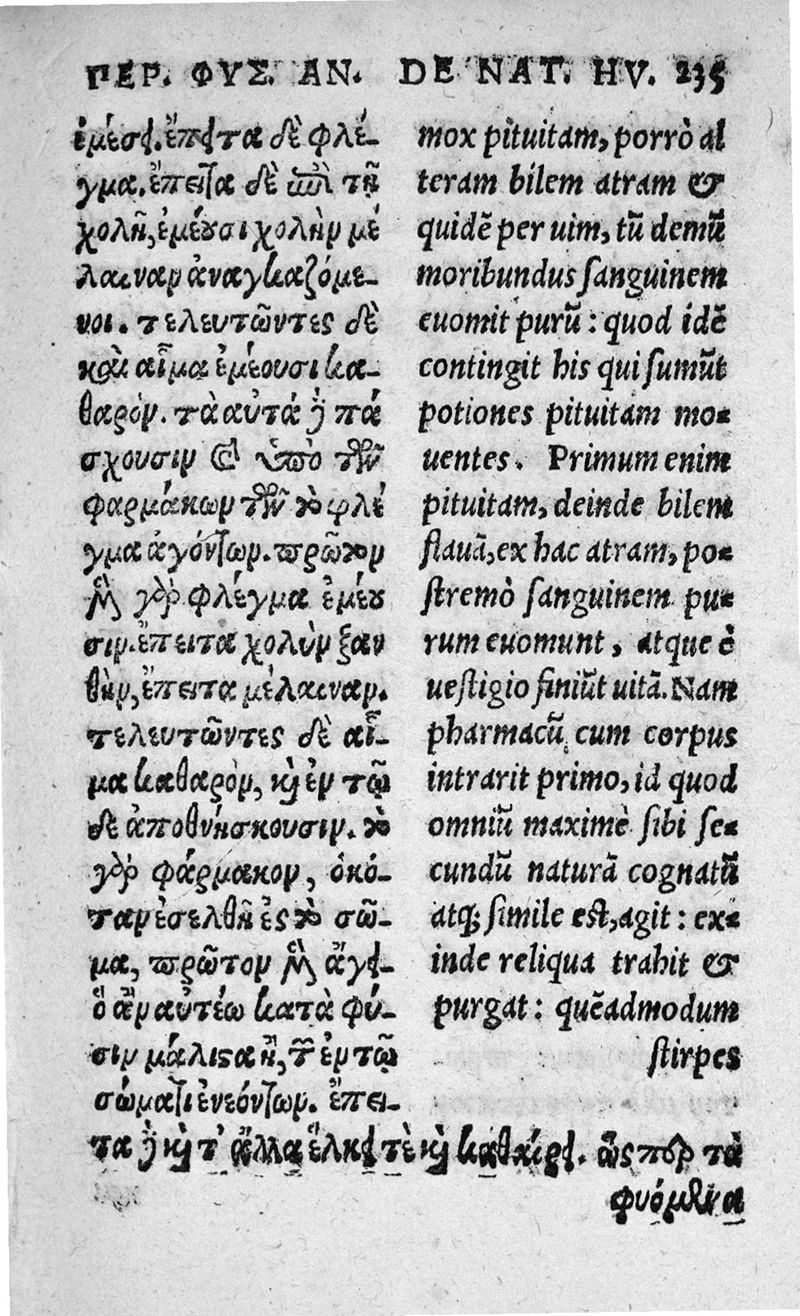 ΠΕΡ. ΦΥΣ. ΑΝ. DE NAT. HV. 235
ἐμέσει. ἔπειτα δὲ φλέ-
γμα. ἔπειτα δὲ ἐπὶ τῇ
χολῇ, ἐμέουσι χολὴν μέ
λαιναν ἀναγκαζόμε-
νοι. τελευτῶντες δὲ
καὶ αἷμα ἐμέουσι κα-
θαρόν. τὰ αὐτά δὲ πά
σχουσιν καὶ ὑπὸ τῶν
φαρμάκων τῶν τὸ φλέ
γμα ἀγόντων. πρῶτον
μὲν γὰρ φλέγμα ἐμέου
σιν. ἔπειτα χολὴν ξαν
θὴν, ἔπειτα μέλαιναν.
τελευτῶντες δὲ αἷ-
μα καθαρὸν, καὶ ἐν τῷ
δε ἀποθνήσκουσιν. τὸ
γὰρ φάρμακον, ὁκό-
ταν ἐσελθῇ ἐς τὸ σῶ-
μα, πρῶτον μὲν ἄγει
ὃ ἂν αὐτέω κατὰ φύ-
σιν μάλιστα ᾖ, τῶν ἐν τῷ
σώματι ἐνεόντων. ἔπει-
τα δὲ καὶ τ' ἄλλα ἕλκει τὲ καὶ καθαίρει. ὥς περ τὰ
φυόμενα
mox pituitam, porrò al
teram bilem atram &
quidẽ per uim, tũ demũ
moribundus sanguinem
euomit purũ: quod idẽ
contingit his qui sumũt
potiones pituitam mo-
uentes. Primum enim
pituitam, deinde bilem
flauã, ex hac atram, po-
stremò sanguinem pu-
rum euomunt, atque è
uestigio finiũt uitã. Nam
pharmacũ cum corpus
intrarit primo, id quod
omniũ maximè sibi se-
cundũ naturã cognatũ
atq; simile est, agit: ex-
inde reliqua trahit &
purgat: quẽadmodum
stirpes